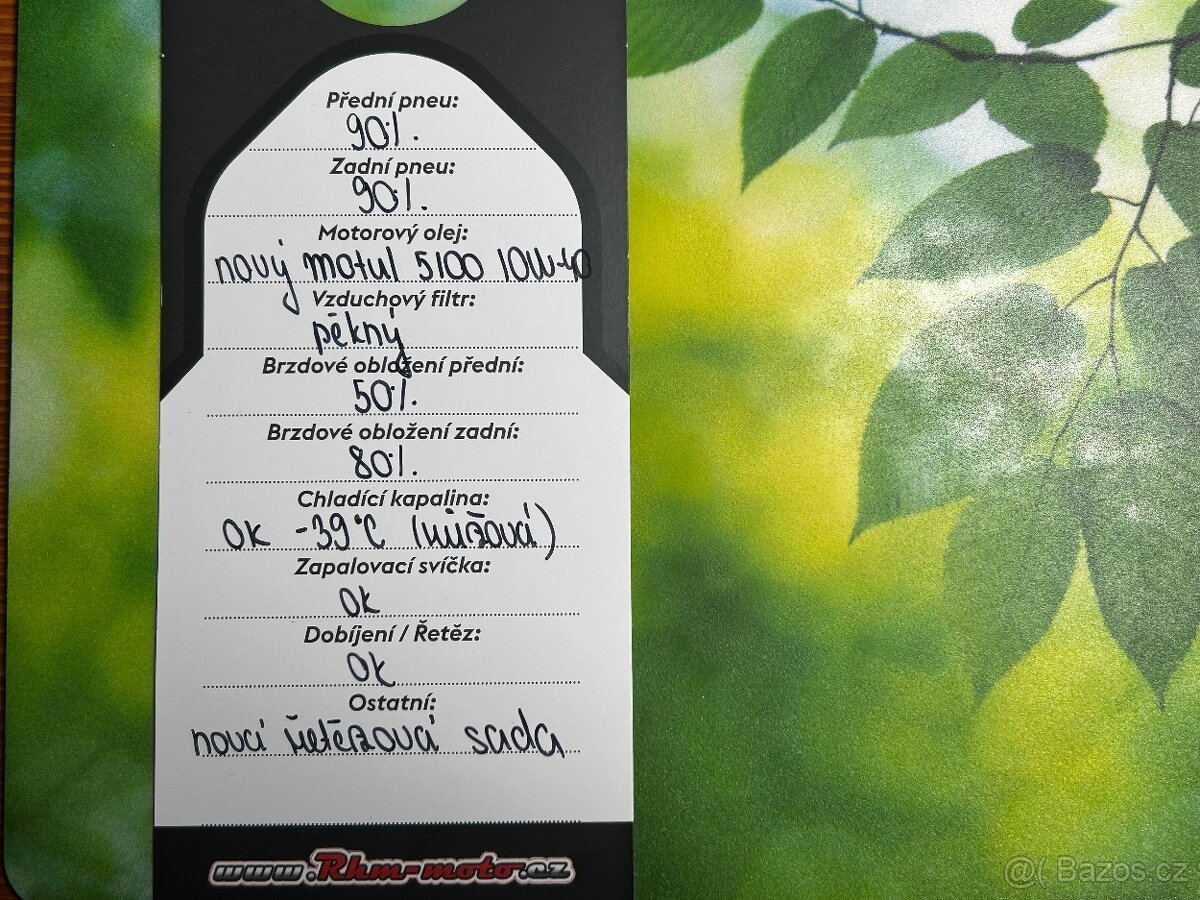 Přední pneu:
90%.
Zadní pneu:
90%.
Motorový olej:
nový motul 5100 10W-40
Vzduchový filtr:
pěkný
Brzdové obložení přední:
50%.
Brzdové obložení zadní:
80%.
Chladící kapalina:
OK -39°C (růžová)
Zapalovací svíčka:
OK
Dobíjení / Řetěz:
OK
Ostatní:
nová řetězová sada
www.Rhm-moto.cz
@( Bazos.cz